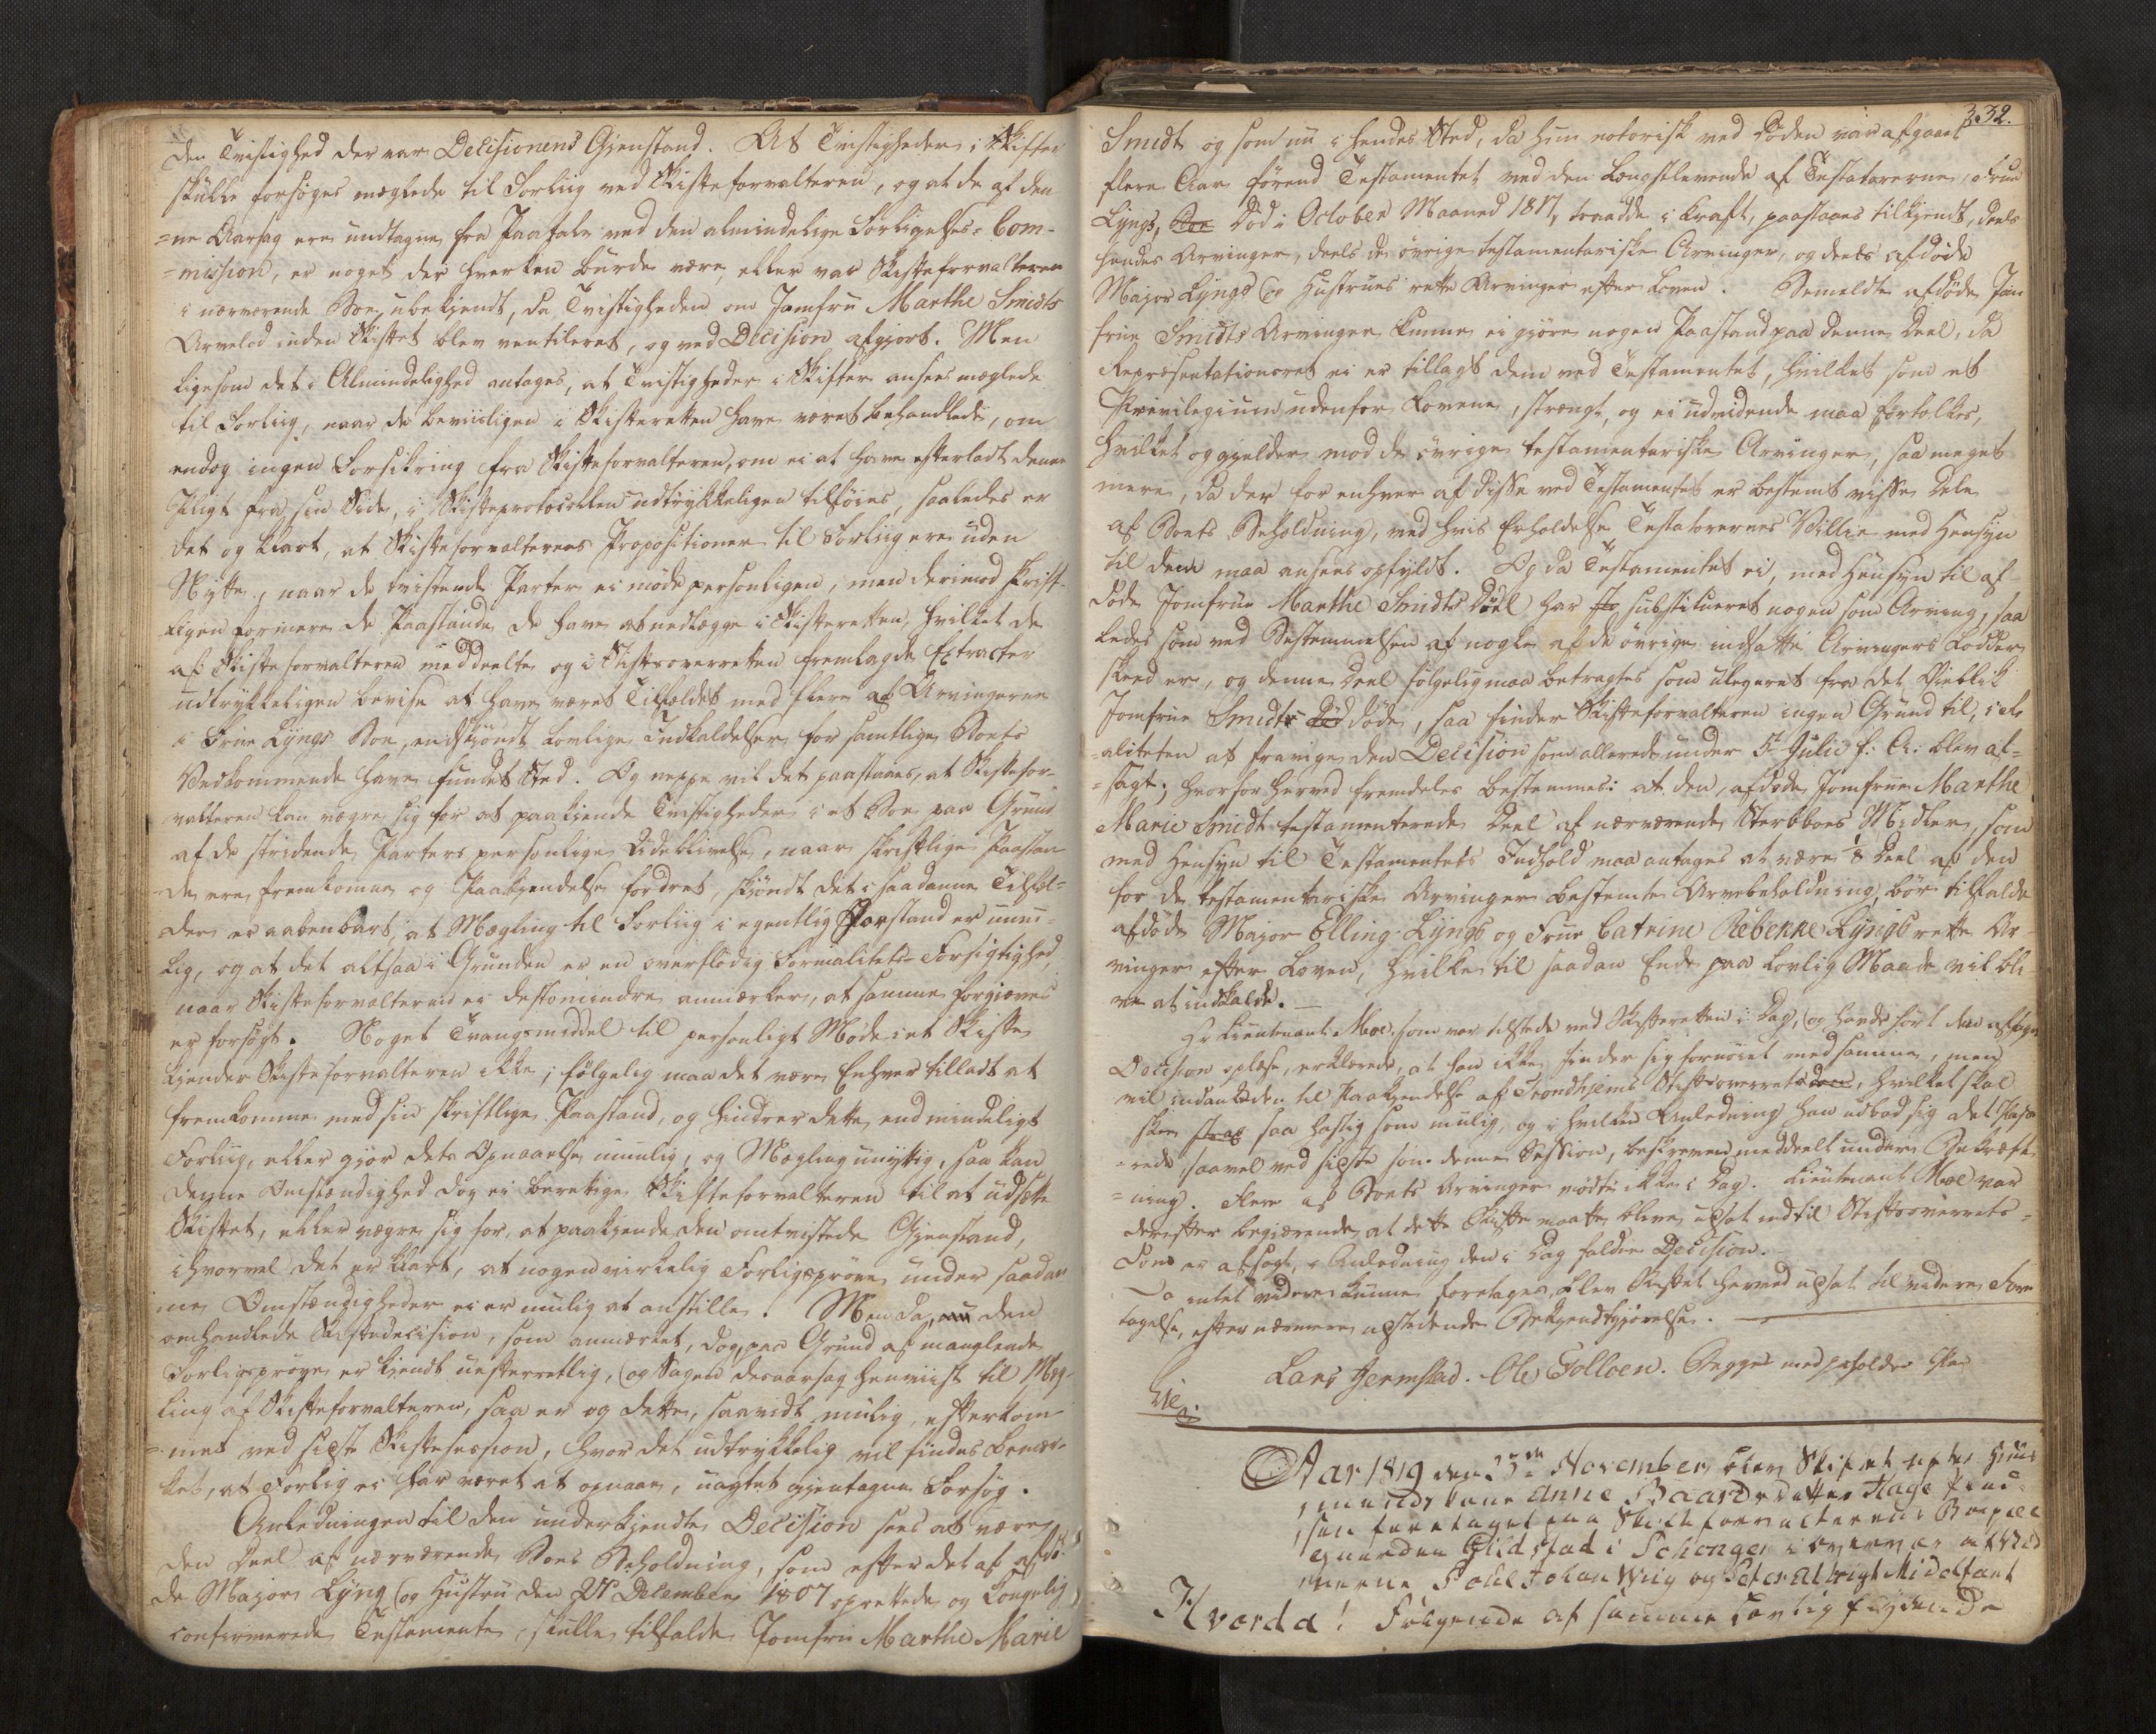 den Tvistighed der var Decisionens Gjenstand. At Tvistigheder i Skifter
skulle forsøges mæglede til Forliig ved Skifteforvalteren, og at de af den
=ne Aarsag ere undtagne fra Paatale ved den almindelige Forligelses-Com-
=mission, er noget der hverken burde være, eller var Skifteforvalteren
i nærværende Boe, ubekjendt, da Tvistigheden om Jomfru Marthe Smidts
Arvelod inden Skiftet blev ventileret, og ved Decision afgjort. Men
ligesom det i Almindelighed antages, at Tvistigheder i Skifter ansees mæglede
til Forliig, naar de beviisligen i Skifteretten have været behandlede, om
endog ingen Forsikring fra Skifteforvalteren, om ei at have efterladt denne
Pligt fra sin Side, i Skifteprotocollen udtrykkeligen tilføies, saaledes er
det og klart, at Skifteforvalterens Propositioner til Forliig ere uden
Nytte, naar de tvistende Parter ei møde personligen, men derimod skrift-
ligen formere de Paastande de have at nedlægge i Skifteretten, hvilket de
af Skifteforvalteren meddeelte og i Stiftsoverretten fremlagde Extracter
udtrykkeligen bevise at have været Tilfældet med flere af Arvingerne
i Frue Lyngs Boe, endskjøndt lovlige Indkaldelser for samtlige Boets
Vedkommende have fundet Sted. Og neppe vil det paastaaes, at Skiftefor-
valteren kan vægre sig for at paakjende Tvistigheder i et Boe paa Grund
af de stridende Parters personlige Udeblivelse, naar skriftlige Paastan-
de ere fremkomne og Paakjendelse fordret, skjøndt det i saadanne Tilfæl=
der er aabenbart, at Mægling til Forliig i egentlig Forstand er umu-
lig, og at det altsaa i Grunden er en overflødig Formalitets-Forsigtighed,
naar Skifteforvalteren ei destomindre anmærker, at samme forgjæves
er forsøgt. Noget Tvangsmiddel til personligt Møde i et Skifte
kjender Skifteforvalteren ikke; følgelig maa det være Enhver tilladt at
fremkomme med sin skriftlige Paastand, og hindrer dette, end mindeligt
Forliig, eller gjør dets Opnaaelse umulig, og Mægling unyttig, saa kan
denne Omstændighed dog ei berettige Skifteforvalteren til at udsætte
Skiftet, eller vægre sig for, at paakjende den omtvistede Gjenstand,
ihvorvel det er klart, at nogen virkelig Forligsprøve under saadan
ne Omstændigheder ei er mulig at anstille. Men da, nu den
omhandlede Skiftedecision, som anmærket, dog, paa Grund af manglende
Forligsprøve er kjendt uefterrettlig, og Sagen desaarsag henviist til Mæg-
ling af Skifteforvalteren, saa er og dette, saavidt mulig, efterkom-
=met ved sidste Skiftesession, hvor det udtrykkelig vil findes bemær-
ket, at Forlig ei har været at opnaae, uagtet gjentagne Forsøg.
Anledningen til den underkjendte Decision sees at være
den Deel af nærværende Boes Beholdning, som efter det af afdø-
de Major Lyng og Hustru den 21 December 1807 oprettede og Kongelig
confirmerede Testamente, skulle tilfalde Jomfru Marthe Marie
332.
Smidt og som nu i hendes Sted, da hun notorisk ved Døden var afgaaet
flere Aar førend Testamentet ved den Længstlevende af Testatorerne, Frue
Lyngs, Boe Død i October Maaned 1817, traadde i Kraft, paastaaes tilkjendt, deels
hendes Arvinger, deels de øvrige testamentariske Arvinger, og deels afdøde
Major Lyngs og Hustrues rette Arvinger efter Loven. Bemeldte afdøde Jom
frue Smidts Arvinger kunne ei gjøre nogen Paastand paa denne Deel, da
Repræsentationsret ei er tillagt dem ved Testamentet, hvilket som et
Privilegium udenfor Lovene, strængt, og ei udvidende maa fortolkes,
hvilket og gjelder mod de øvrige testamentariske Arvinger, saa meget
mere, da der for enhver af disse ved Testamentet er bestemt visse Dele
af Boets Beholdning, ved hvis Erholdelse Testatorernes Villie med Hensyn
til dem maa ansees opfyldt. Og da Testamentet ei, med Hensyn til af
døde Jomfrue Marthe Smidts Deel har substitueret nogen som Arving, saa
ledes som ved Bestemmelsen af nogle af de øvrige indsatte Arvingers Lodder
skeed er, og denne Deel følgelig maa betragtes som ulegeret fra det Øieblik
Jomfrue Smidt død døde, saa finder Skifteforvalteren ingen Grund til, i re
aliteten at fravige den Decision som allerede under 5te Julii f: A: blev af=
=sagt; hvorfor herved fremdeles bestemmes: at den, afdøde Jomfrue Marthe
Marie Smidt testamenterede Deel af nærværende Sterbboes Midler, som
med Hensyn til Testamentets Indhold maa antages at være 1/8 Deel af den
for de testamentariske Arvinger bestemte Arvebeholdning, bør tilfalde
afdøde Major Elling Lyngs og Frue Catrine Rebekke Lyngs rette Ar
vinger efter Loven, hvilke til saadan Ende paa lovlig Maade vil bli
ve at indkalde.
Hr Lieutenant Moe, som var tilstede ved Skifteretten i Dag, og havde hørt den afsagte
Decision oplæse, erklærede, at han ikke finder sig fornøiet med samme, men
vil indanke den til Paakjendelse af Trondhjems Stiftsoverret, hvilket skal
skee strax saa hastig som mulig, og i hvilken Anledning han udbad sig det Passe
=rede, saavel ved sidste som denne Session, beskreven meddeelt under Bekræft
=ning. Flere af Boets Arvinger mødte ikke i Dag. Lieutenant Moe var
derefter begjærende, at dette Skifte maatte blive udsat indtil Stiftsoverrets=
Dom er afsagt, i Anledning den i Dag faldne Decision.
Da intet videre kunne foretages, blev Skiftet herved udsat til videre Fore
tagelse, efter nærmere udstedende Bekjendtgjørelse.
Lars Jermstad. Ole Tolloen. Begge med paaholden Pen
Lie.
Aar 1819 den 23de November blev Skiftet efter Huus
mands Kone Anne Baardsdatter Hage
foretaget paa Skifteforvalterens Boepæl
Gaarden Gildstad i Schongen i overvær af Vid
nerne Povel Johan Wiig og Peter Albrigt Midelfart
Hvorda! Følgende af samme Lovlig